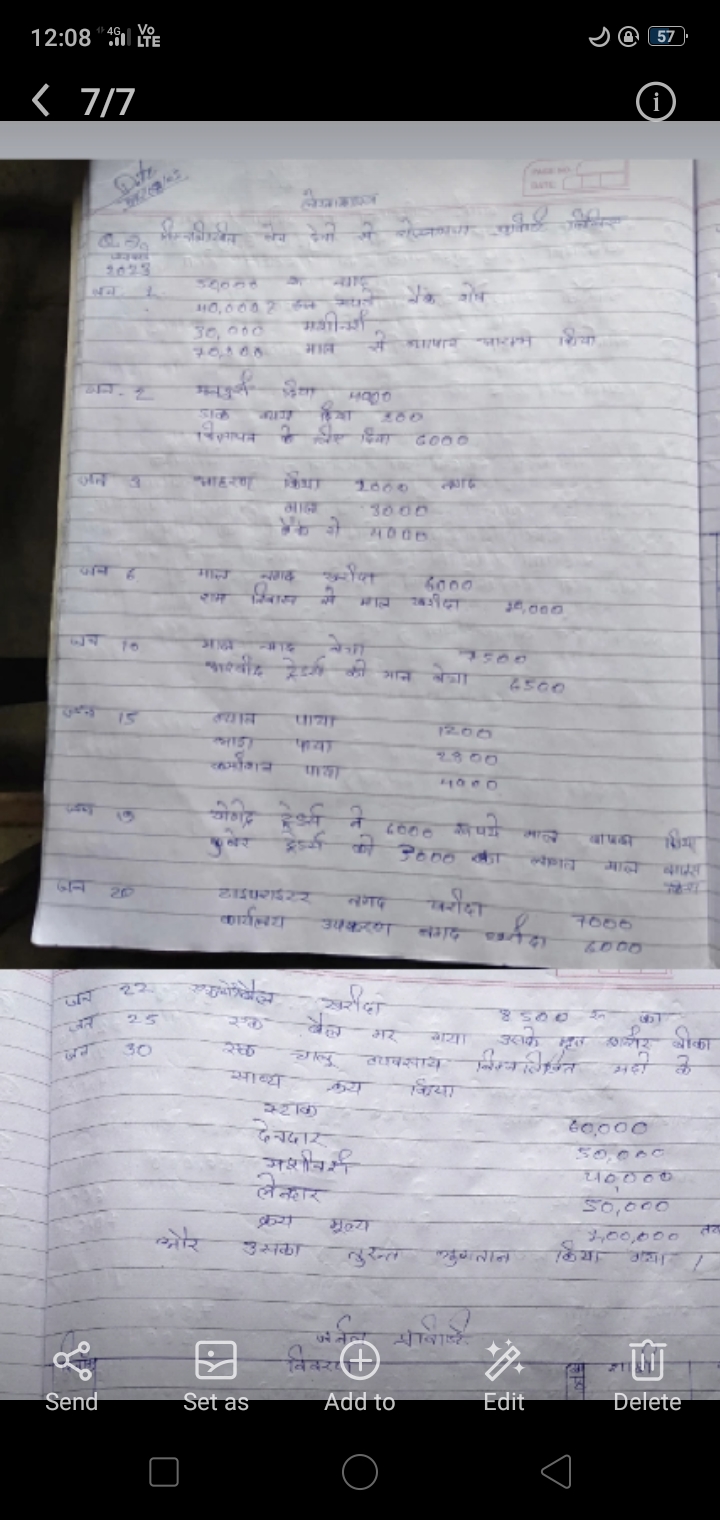 12:08 4G Vo LTE 57
7/7
Date
PAGE NO.
DATE:
निम्नलिखित लेन देनो से रोजनामचा प्रविष्टि
2023
जन. 1. 50,000 रु नगद
40,000 बैंक शेष
30,000 मशीनरी
70,000 माल से व्यापार आरम्भ किया
जन. 2 मजदूरी दिया 4000
डाक व्यय दिया 200
विज्ञापन के लिए दिया 6000
जन 3 आहरण किया 2000 नगद
माल 3000
बैंक से 4000
जन 6 माल नगद खरीदा 6000
राम निवास से माल खरीदा 20,000
जन 10 माल नगद बेचा 7500
ट्रेडर्स को माल बेचा 6500
जन 15 ब्याज पाया 1200
भाड़ा पाया 2800
कमीशन पाया 4000
जन ट्रेडर्स ने 6000 रूपये माल वापस किया
कुबेर ट्रेडर्स को 3000 का माल वापस
किया
जन 20 टाइपराइटर नगद खरीदा 7000
कार्यालय उपकरण नगद खरीदा 6000
जन 22 खरीदा 8500 रू का
जन 25 एक बैल मर गया उसके मृत शरीर बीका
जन 30 एक चालु व्यवसाय निम्नलिखित मदो के
साथ क्रय किया
स्टाक 60,000
देनदार 50,000
मशीनरी 40,000
लेनदार 50,000
क्रय मूल्य 1,00,000
और उसका तुरन्त भुगतान किया गया ।
जर्नल प्रविष्टि
विवरण
Send Set as Add to Edit Delete